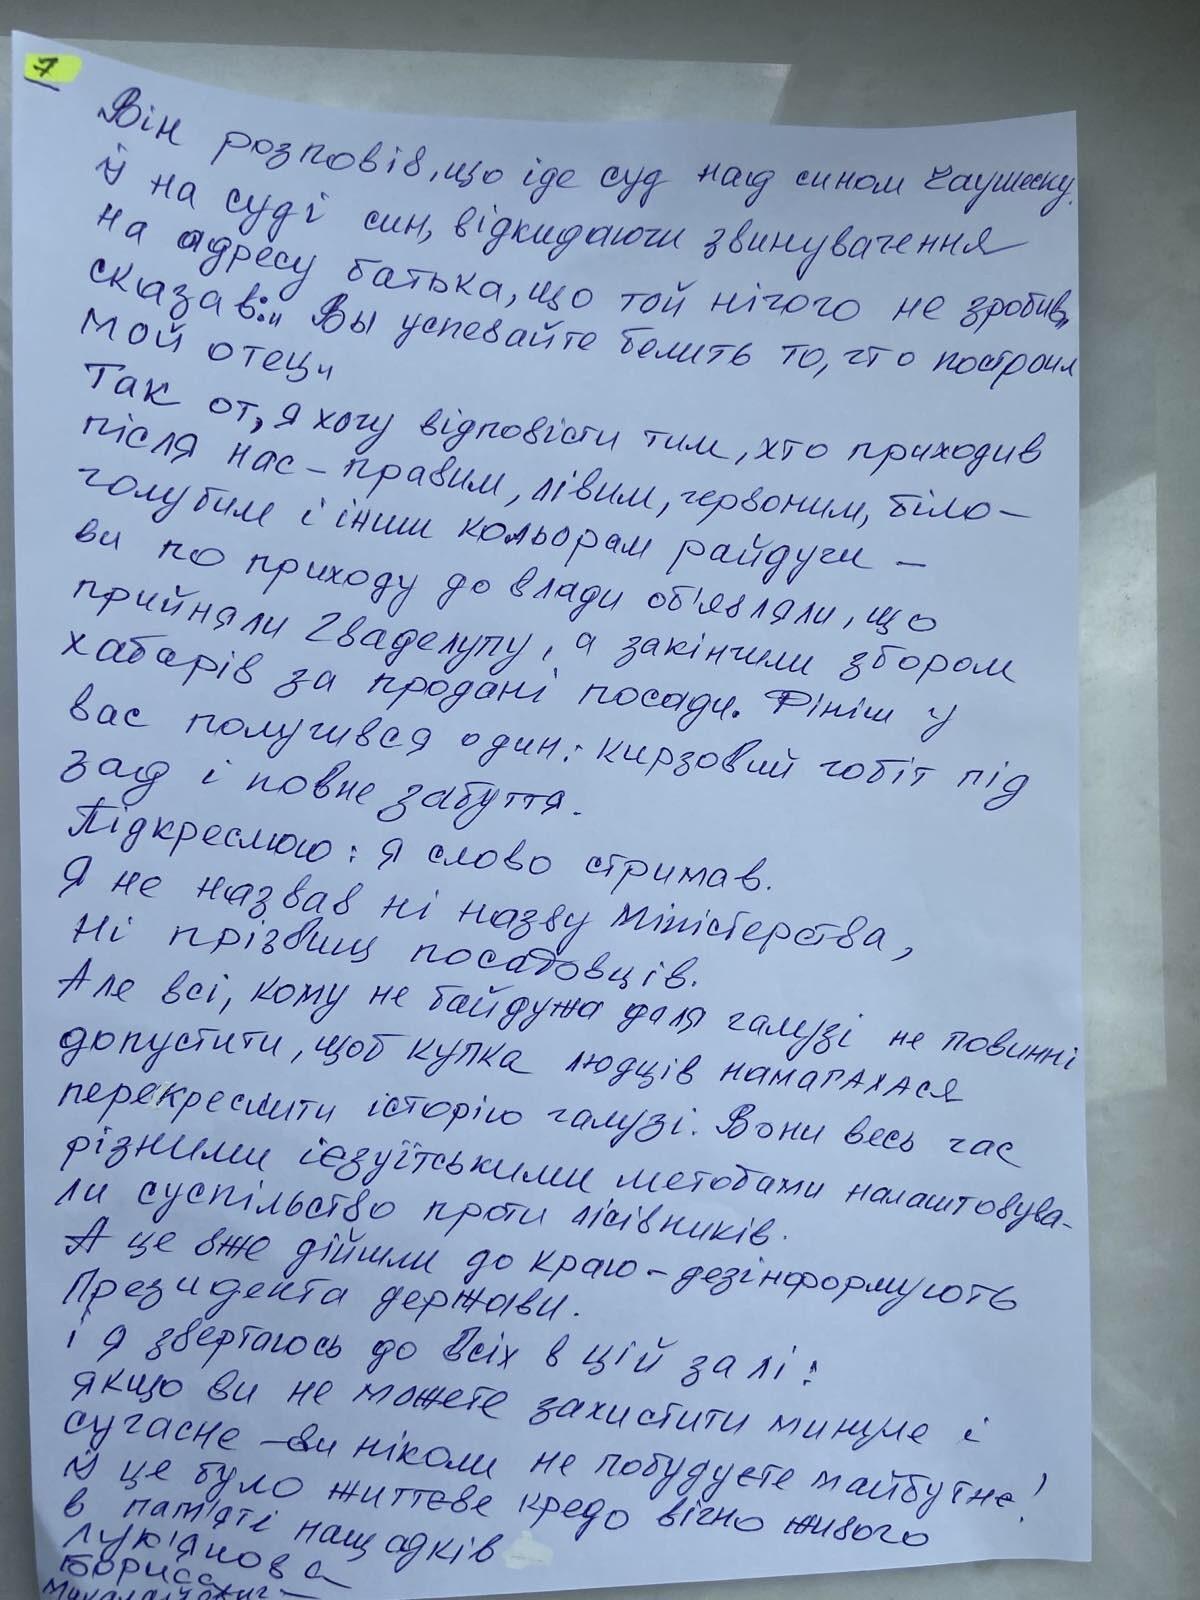 7
Він розповів, що іде суд над сином Чаушеску.
Й на суді син, відкидаючи звинувачення
на адресу батька, що той нічого не зробив,
сказав: "Вы успевайте белить то, что построил
мой отец"
Так от, я хочу відповісти тим, хто приходив
після нас – правим, лівим, червоним, біло-
голубим і інши кольорам райдуги –
ви по приходу до влади об'являли, що
прийняли Гваделупу, а закінчили збором
хабарів за продані посади. Фініш у
вас получився один: кирзовий чобіт під
зад і повне забуття.
Підкреслюю: я слово стримав.
Я не назвав ні назву міністерства,
ні прізвищ посадовців.
Але всі, кому не байдужа доля галузі не повинні
допустити, щоб купка людців намагахася
перекреслити історію галузі. Вони весь час
різними ієзуїтськими методами налаштовува-
ли суспільство проти лісівників.
А це вже дійшли до краю – дезінформують
Президента держави.
І я звертаюсь до всіх в цій залі:
якщо ви не можете захистити минуле і
сучасне – ви ніколи не побудуєте майбутнє!
Й це було життєве кредо вічно живого
в пам'яті нащадків
Лук'янова
Бориса
Миколайович